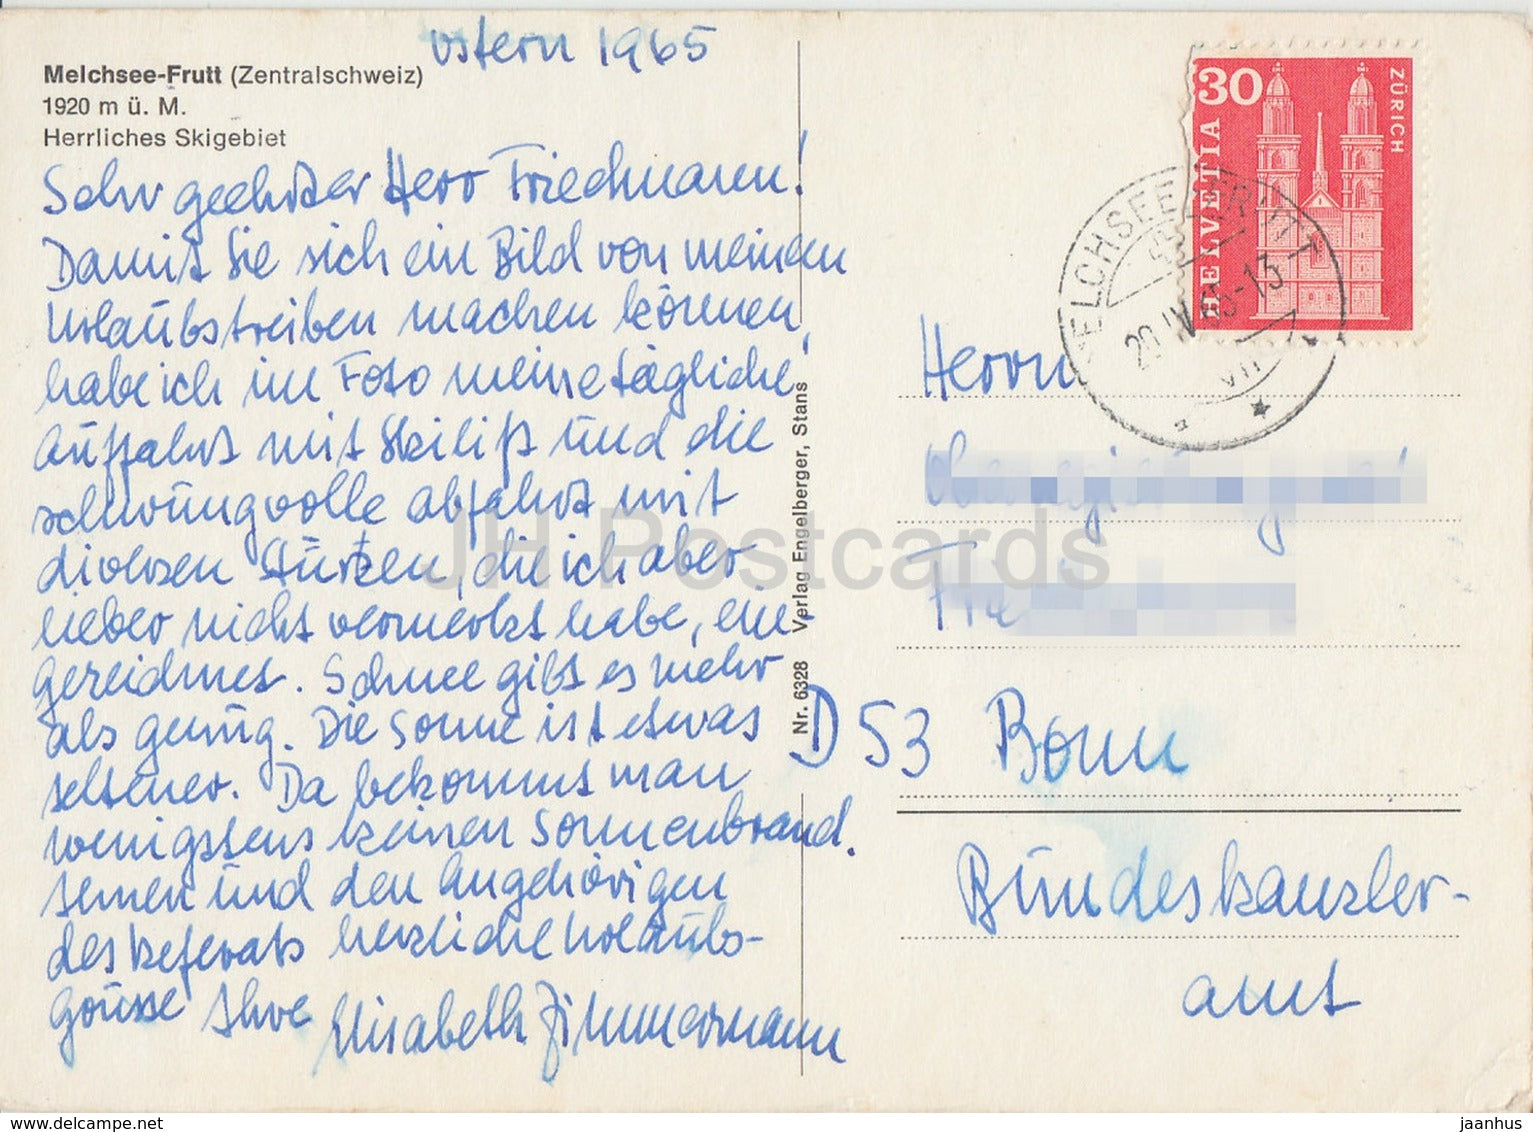 Ostern 1965
Melchsee-Frutt (Zentralschweiz)
1920 m ü. M.
Herrliches Skigebiet
Sehr geehrter Herr Friedmann!
Damit Sie sich ein Bild von meinen
Urlaubstreiben machen können,
habe ich im Foto meine tägliche
Auffahrt mit Skilift und die
schwungvolle Abfahrt mit
diversen Stürzen, die ich aber
lieber nicht vermerkt habe, ein-
gezeichnet. Schnee gibt es mehr
als genug. Die Sonne ist etwas
seltener. Da bekommt man
wenigstens keinen Sonnenbrand.
Ihnen und den Angehörigen
des Referats herzliche Urlaubs-
grüsse Ihre Elisabeth Zimmermann
Nr. 6328 Verlag Engelberger, Stans
30
ZÜRICH
HELVETIA
MELCHSEE-FRUTT
20.IV.65-13
Herrn
D 53 Bonn
Bundeskanzler-
amt
JH Postcards
HipPostcard.com
jaanhus